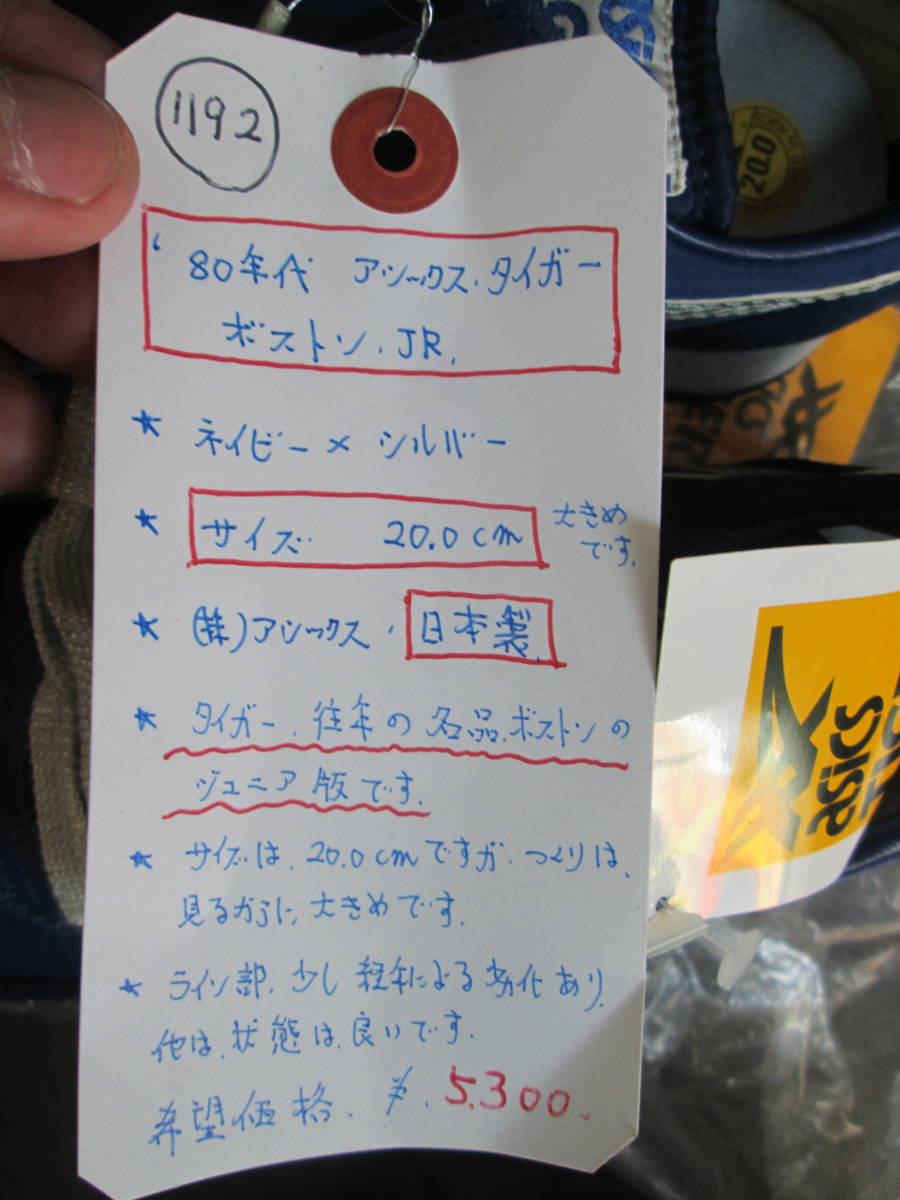 1192
'80年代 アシックス.タイガー
ボストン.JR.
★ ネイビー×シルバー
★ サイズ 20.0cm 大きめ
です.
★ (株)アシックス. 日本製.
★ タイガー.往年の名品.ボストンの
ジュニア版です.
★ サイズは.20.0cmですが.つくりは.
見るからに.大きめです.
★ ライン部.少し経年による劣化あり.
他は.状態は.良いです.
希望価格.¥.5.300.
20.0
asics